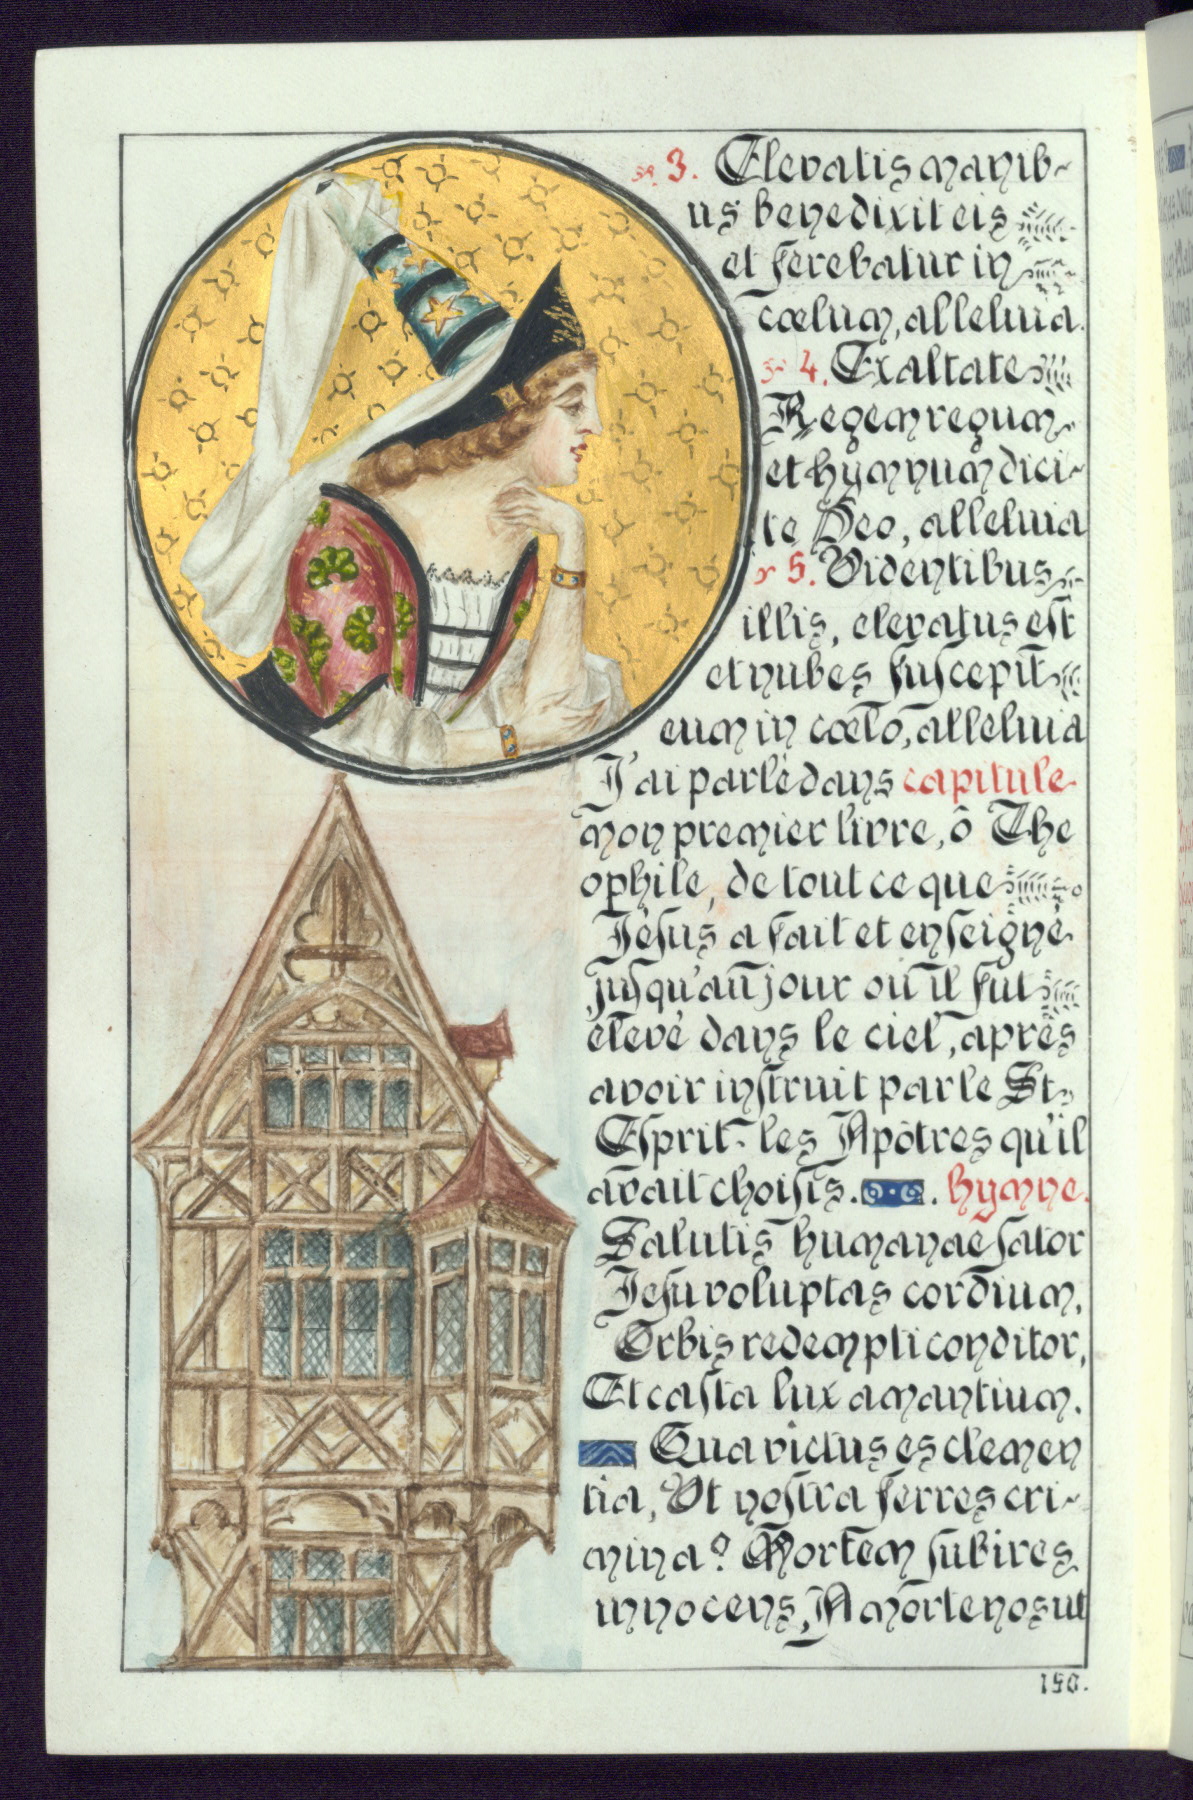 3. Elevatis manib~
us benedixit eis
et ferebatur in
cœlum, alleluia.
4. Exaltate
Regem regum
et hymnum dici~
te Deo, alleluia
5. Videntibus
illis, elevatus eſt
et nubes ſuſcepit
eum in cœlo, alleluia
J'ai parlé dans capitule
mon premier livre, ô The
ophile, de tout ce que
Jéſus a fait et enſeigné
juſqu'au jour où il fut
élevé dans le ciel, après
avoir inſtruit par le St.
Eſprit les Apôtres qu'il
avait choiſis. hymne.
Salutis humanae ſator
Jeſu voluptas cordium,
Orbis redempti conditor,
Et caſta lux amantium.
Qua victus es clemen
tia, Ut noſtra ferres cri~
mina? Mortem ſubires
innocens, A morte nos ut
190.